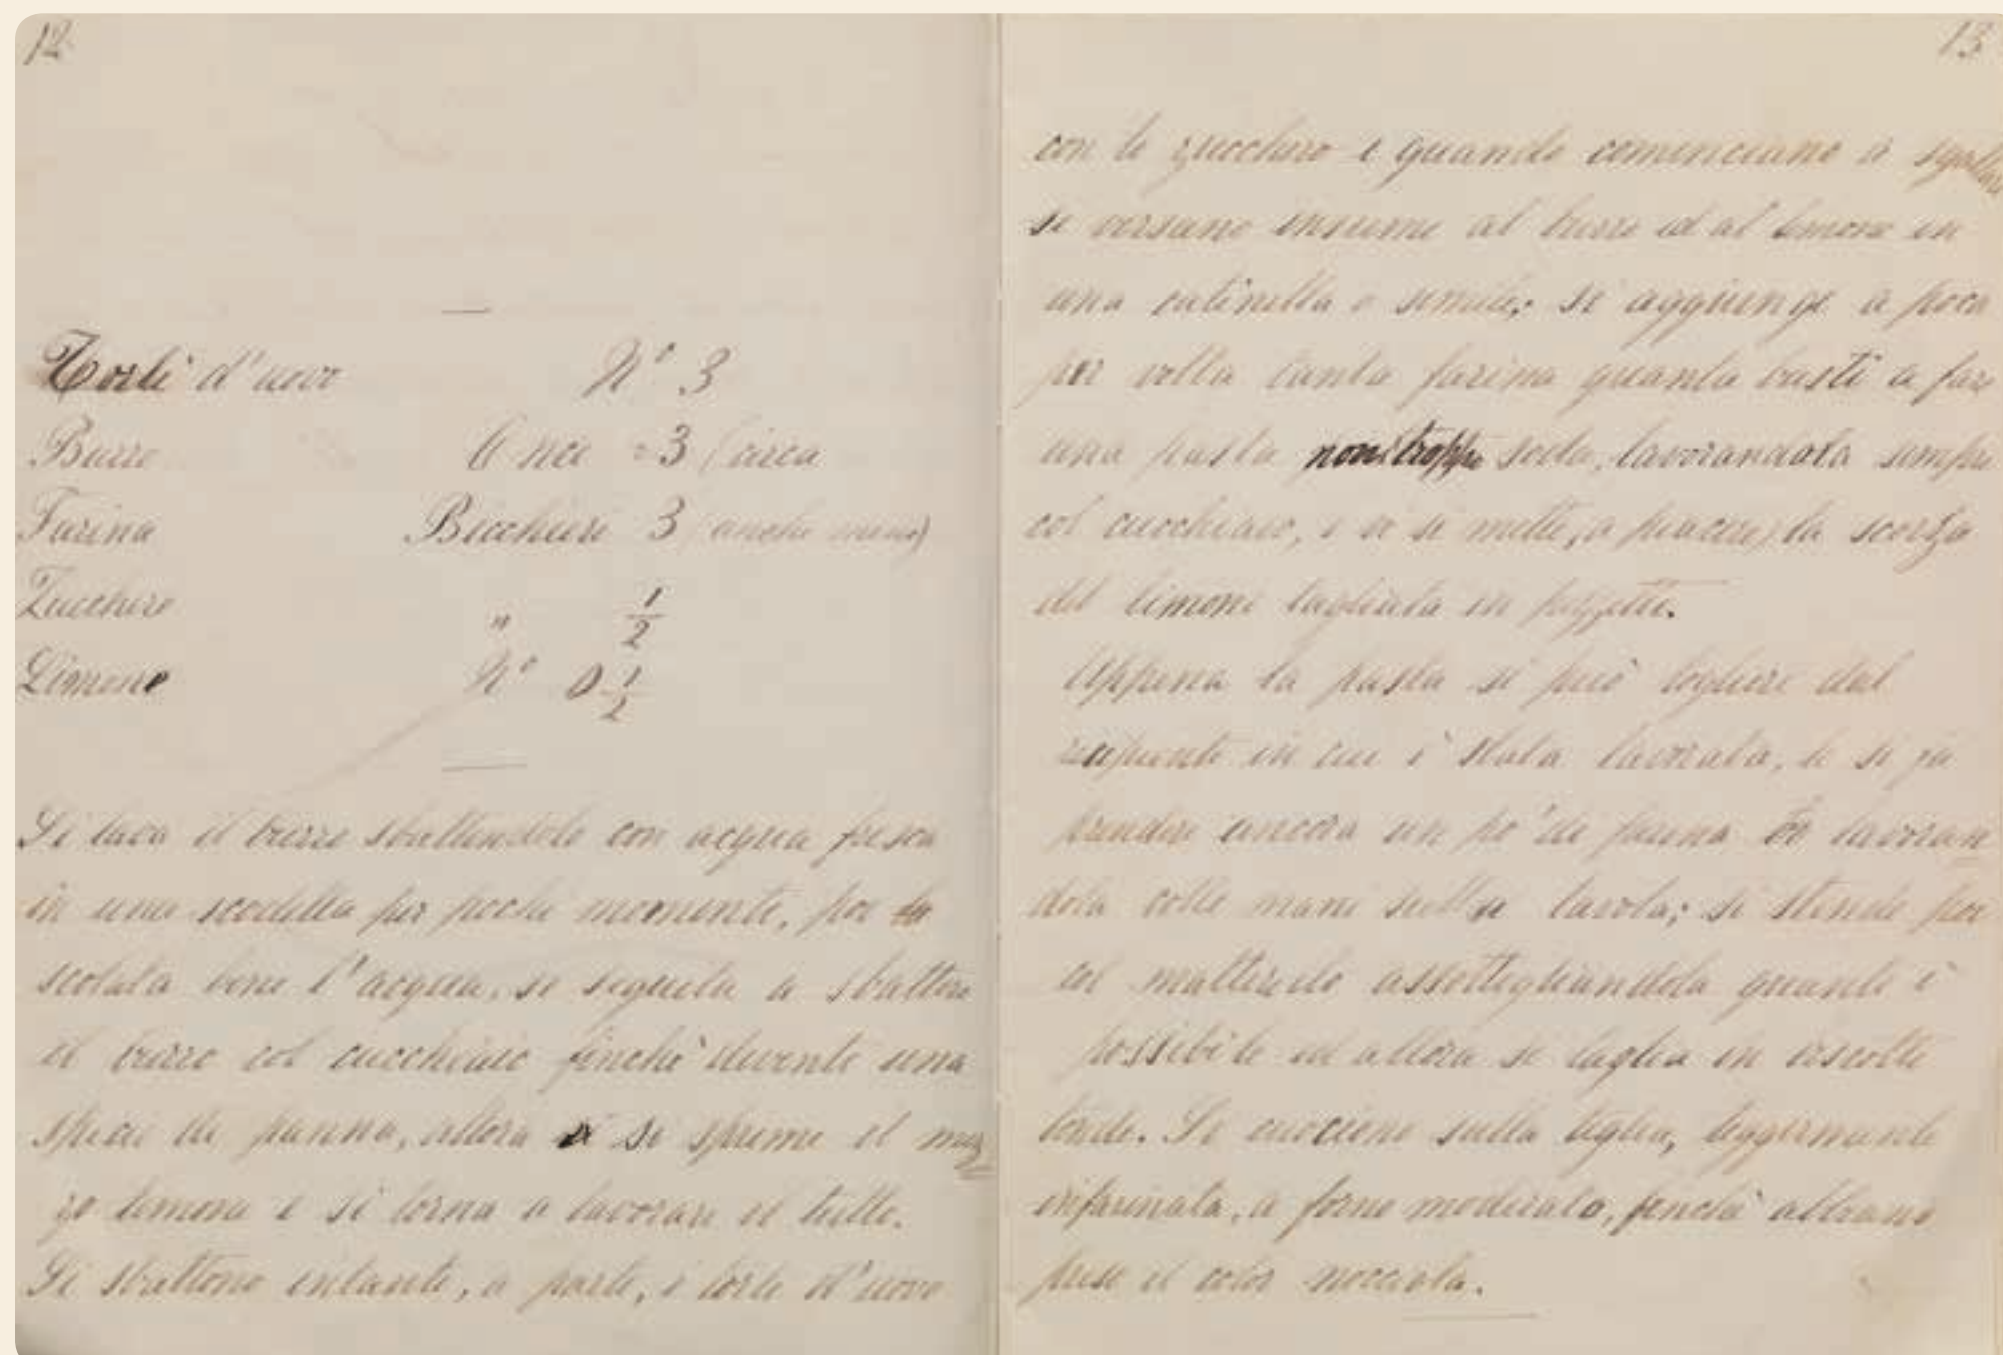 12
Torli d'uovo N° 3
Burro Once 3 circa
Farina Bicchieri 3 (anche meno)
Zucchero " 1/2
Limone N° 0 1/2
Si lava il burro sbattendolo con acqua fresca
in una scodella per pochi momenti, poi
scolata bene l'acqua, si seguita a sbattere
il burro col cucchiaio finchè diventi una
specie di panna, allora si sprime il mez
zo limone e si torna a lavorare il tutto.
Si sbattono intanto, a parte, i torli d'uovo
13
con lo zucchero e quando cominciano a
si versano insieme al burro ed al limone in
una catinella o simile; si aggiunge a poca
per volta tanta farina quanta basti a fare
una pasta non troppo soda, lavorandola sempre
col cucchiaio, e vi si mette, a piacere, la scorza
del limone tagliata in pezzetti.
Appena la pasta si può togliere dal
recipiente in cui è stata lavorata, le si fa
prendere ancora un po' di farina lavoran
dola colle mani sulla tavola; si stende poi
col matterello assottigliandola quanto è
possibile ed allora si taglia in biscotti
tondi. Si cuociono sulla teglia, leggermente
infarinata, a forno moderato, finchè abbiano
preso il color nocciola.